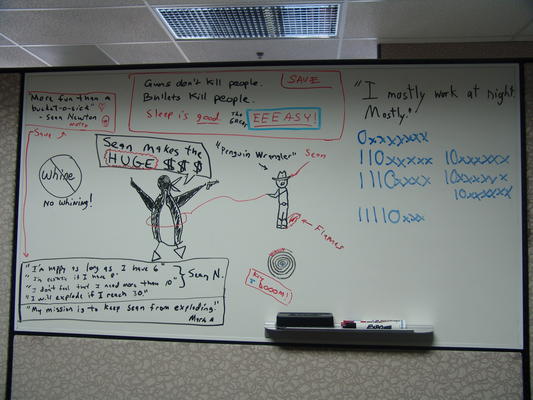 "More fun than a
bucket-o-sick"
- Sean Newton
Save
Guns don't kill people.
Bullets kill people.
Sleep is good The Great EEEASY!
SAVE
"I mostly work at night.
Mostly."
0xxxxxxx
110xxxxx 10xxxxxx
1110xxxx 10xxxxxx
10xxxxxx
11110xxx
Sean makes the
HUGE $$$
"Penguin Wrangler"
Sean
Whine
NO WHINING!
Flames
BOOM!
"I'm happy as long as I have 6"
"I'm ecstatic if I have 8"
"I don't feel that I need more than 10"
"I will explode if I reach 30."
Sean N.
"My mission is to keep Sean from exploding."
Mark A
EXPO